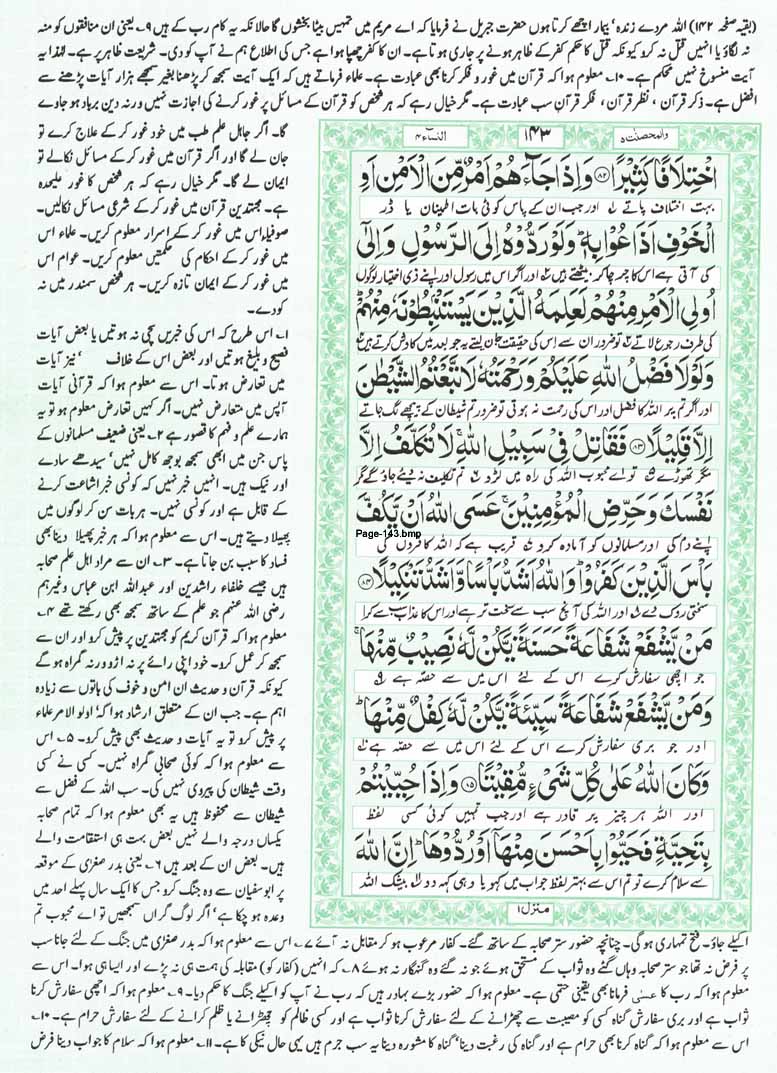 (بقیہ صفحہ ۱۴۲) اللہ مردے زندہ' بیمار اچھے کرتا ہوں حضرت جبریل نے فرمایا کہ اے مریم میں تمہیں بیٹا بخشوں گا حالانکہ یہ کام رب کے ہیں ۹۔ یعنی ان منافقوں کو منہ
نہ لگاؤ یا انہیں قتل نہ کرو کیونکہ قتل کا حکم کفر کے ظاہر ہونے پر جاری ہوتا ہے۔ ان کا کفر چھپا ہوا ہے جس کی اطلاع ہم نے آپ کو دی۔ شریعت ظاہر پر ہے۔ لہٰذا یہ
آیت منسوخ نہیں محکم ہے۔ ۱۰۔ معلوم ہوا کہ قرآن میں غور و فکر کرنا بھی عبادت ہے۔ علماء فرماتے ہیں کہ ایک آیت سمجھ کر پڑھنا بغیر سمجھے ہزار آیات پڑھنے سے
افضل ہے۔ ذکر قرآن، نظر قرآن، فکر قرآن سب عبادت ہے۔ مگر خیال رہے کہ ہر شخص کو قرآن کے مسائل پر غور کرنے کی اجازت نہیں ورنہ دین برباد ہو جاوے
گا۔ اگر جاہل علم طب میں خود غور کر کے علاج کرے تو
جان لے گا اور اگر قرآن میں غور کر کے مسائل نکالے تو
ایمان لے گا۔ مگر خیال رہے کہ ہر شخص کا غور علیحدہ
ہے۔ مجتہدین قرآن میں غور کر کے شرعی مسائل نکالیں۔
صوفیاء اس میں غور کر کے اسرار معلوم کریں۔ علماء اس
میں غور کر کے احکام کی حکمتیں معلوم کریں۔ عوام اس
میں غور کر کے ایمان تازہ کریں۔ ہر شخص سمندر میں نہ
کودے۔
۱۔ اس طرح کہ اس کی خبریں سچی نہ ہوتیں یا بعض آیات
فصیح و بلیغ ہوتیں اور بعض اس کے خلاف ' نیز آیات
میں تعارض ہوتا۔ اس سے معلوم ہوا کہ قرآنی آیات
آپس میں متعارض نہیں۔ اگر کہیں تعارض معلوم ہو تو یہ
ہمارے علم و فہم کا قصور ہے ۲۔ یعنی ضعیف مسلمانوں کے
پاس جن میں ابھی سمجھ بوجھ کامل نہیں' سیدھے سادے
اور نیک ہیں۔ انہیں خبر نہیں کہ کونسی خبر اشاعت کرنے
کے قابل ہے اور کونسی نہیں۔ ہر بات سن کر لوگوں میں
پھیلا دیتے ہیں۔ اس سے معلوم ہوا کہ ہر خبر پھیلا دینا بھی
فساد کا سبب بن جاتا ہے۔ ۳۔ ان سے مراد اہل علم صحابہ
ہیں جیسے خلفاء راشدین اور عبداللہ ابن عباس وغیرہم
رضی اللہ عنہم جو علم کے ساتھ سمجھ بھی رکھتے تھے ۴۔
معلوم ہوا کہ قرآن کریم کو مجتہدین پر پیش کرو اور ان سے
سمجھ کر عمل کرو۔ خود اپنی رائے پر نہ اڑو ورنہ گمراہ ہو گے
کیونکہ قرآن و حدیث ان امن و خوف کی باتوں سے زیادہ
اہم ہے۔ جب ان کے متعلق ارشاد ہوا کہ' اولو الامر علماء
پر پیش کرو تو یہ آیات و حدیث بھی پیش کرو۔ ۵۔ اس
سے معلوم ہوا کہ کوئی صحابی گمراہ نہیں۔ کسی نے کسی
وقت شیطان کی پیروی نہیں کی۔ سب اللہ کے فضل سے
شیطان سے محفوظ ہیں یہ بھی معلوم ہوا کہ تمام صحابہ
یکساں درجہ والے نہیں بعض بہت ہی استقامت والے
ہیں۔ بعض ان کے بعد ہیں ۶۔ یعنی بدر صغریٰ کے موقعہ
پر ابو سفیان سے وہ جنگ کرو جس کا ایک سال پہلے احد میں
وعدہ ہو چکا ہے' اگر لوگ گراں سمجھیں تو اے محبوب تم
والمحصنت ۵
۱۴۳
النسآء ۴
اخْتِلَافًا كَثِيْرًا ﴿۸۲﴾ وَاِذَا جَآءَهُمْ اَمْرٌ مِّنَ الْاَمْنِ اَوِ
بہت اختلاف پاتے ۱ اور جب ان کے پاس کوئی بات اطمینان یا ڈر
الْخَوْفِ اَذَاعُوْا بِهٖ ؕ وَلَوْ رَدُّوْهُ اِلَى الرَّسُوْلِ وَاِلٰۤى
کی آتی ہے اس کا چرچا کر بیٹھتے ہیں ۲ اور اگر اس میں رسول اور اپنے ذی اختیار لوگوں
اُولِى الْاَمْرِ مِنْهُمْ لَعَلِمَهُ الَّذِيْنَ يَسْتَنْۢبِطُوْنَهٗ مِنْهُمْ ؕ
کی طرف رجوع لاتے ۳ تو ضرور ان سے اس کی حقیقت جان لیتے یہ جو بعد میں کاوش کرتے ہیں ۴
وَلَوْلَا فَضْلُ اللّٰهِ عَلَيْكُمْ وَرَحْمَتُهٗ لَاتَّبَعْتُمُ الشَّيْطٰنَ
اور اگر تم پر اللہ کا فضل اور اس کی رحمت نہ ہوتی تو ضرور تم شیطان کے پیچھے لگ جاتے
اِلَّا قَلِيْلًا ﴿۸۳﴾ فَقَاتِلْ فِيْ سَبِيْلِ اللّٰهِ ۚ لَا تُكَلَّفُ اِلَّا
مگر تھوڑے ۵ تو اے محبوب اللہ کی راہ میں لڑو ۶ تم تکلیف نہ دیئے جاؤ گے مگر
نَفْسَكَ وَحَرِّضِ الْمُؤْمِنِيْنَ ۚ عَسَى اللّٰهُ اَنْ يَّكُفَّ
Page-143.bmp
اپنے دم کی اور مسلمانوں کو آمادہ کرو ۷ قریب ہے کہ اللہ کافروں کی
بَاْسَ الَّذِيْنَ كَفَرُوْا ؕ وَاللّٰهُ اَشَدُّ بَاْسًا وَّاَشَدُّ تَنْكِيْلًا ﴿۸۴﴾
سختی روک دے ۸ اور اللہ کی آنچ سب سے سخت تر ہے اور اس کا عذاب سب سے کڑا
مَنْ يَّشْفَعْ شَفَاعَةً حَسَنَةً يَّكُنْ لَّهٗ نَصِيْبٌ مِّنْهَا ۚ
جو اچھی سفارش کرے اس کے لئے اس میں سے حصہ ہے ۹
وَمَنْ يَّشْفَعْ شَفَاعَةً سَيِّئَةً يَّكُنْ لَّهٗ كِفْلٌ مِّنْهَا ؕ
اور جو بری سفارش کرے اس کے لئے اس میں سے حصہ ہے ۱۰
وَكَانَ اللّٰهُ عَلٰى كُلِّ شَيْءٍ مُّقِيْتًا ﴿۸۵﴾ وَاِذَا حُيِّيْتُمْ
اور اللہ ہر چیز پر قادر ہے اور جب تمہیں کوئی کسی لفظ
بِتَحِيَّةٍ فَحَيُّوْا بِاَحْسَنَ مِنْهَاۤ اَوْ رُدُّوْهَا ؕ اِنَّ اللّٰهَ
سے سلام کرے تو تم اس سے بہتر لفظ جواب میں کہو یا وہی کہہ دو ۱۱ بیشک اللہ
منزل ۱
اکیلے جاؤ۔ فتح تمہاری ہوگی۔ چنانچہ حضور ستر صحابہ کے ساتھ گئے۔ کفار مرعوب ہو کر مقابل نہ آئے ۷۔ اس سے معلوم ہوا کہ بدر صغریٰ میں جنگ کے لئے جانا سب
پر فرض نہ تھا جو ستر صحابہ وہاں گئے وہ ثواب کے مستحق ہوئے جو نہ گئے وہ گنہگار نہ ہوئے ۸۔ کہ انہیں (کفار کو) مقابلہ کی ہمت ہی نہ پڑے اور ایسا ہی ہوا۔ اس سے
معلوم ہوا کہ رب کا عسٰی فرمانا بھی یقینی حتمی ہے۔ معلوم ہوا کہ حضور بڑے بہادر ہیں کہ رب نے آپ کو اکیلے جنگ کا حکم دیا۔ ۹۔ معلوم ہوا کہ اچھی سفارش کرنا
ثواب ہے اور بری سفارش گناہ کسی کو مصیبت سے چھڑانے کے لئے سفارش کرنا ثواب ہے اور کسی ظالم کو چھڑانے یا ظلم کرانے کے لئے سفارش حرام ہے۔ ۱۰۔
اس سے معلوم ہوا کہ گناہ کرنا بھی حرام ہے اور گناہ کی رغبت دینا' گناہ کا مشورہ دینا یہ سب جرم ہیں یہی حال نیکی کا ہے۔ ۱۱۔ معلوم ہوا کہ سلام کا جواب دینا فرض